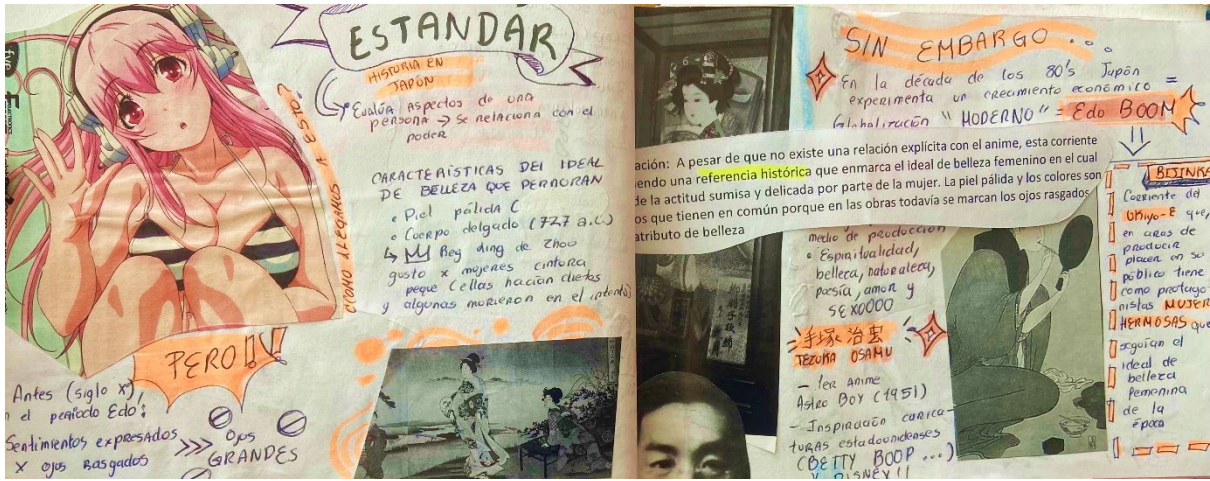 ESTANDAR
HISTORIA EN
JAPÓN
Evalúa aspectos de una
persona → Se relaciona con el
poder
¿CÓMO LLEGAMOS A ESTO?
CARACTERÍSTICAS DEL IDEAL
DE BELLEZA QUE PERDURAN
• Piel pálida
• Cuerpo delgado (727 a.c)
↳ Rey ding de Zhou
gusto x mujeres cintura
peque (ellas hacían dietas
y algunas murieron en el intento)
PERO!!
Antes (siglo X),
el período Edo:
Sentimientos expresados
X ojos rasgados
>>> Ojos
GRANDES
SIN EMBARGO...
En la década de los 80's Japón =
experimenta un crecimiento económico =
Globalización "MODERNO" = Edo BOOM
ación: A pesar de que no existe una relación explícita con el anime, esta corriente
iendo una referencia histórica que enmarca el ideal de belleza femenino en el cual
de la actitud sumisa y delicada por parte de la mujer. La piel pálida y los colores son
os que tienen en común porque en las obras todavía se marcan los ojos rasgados
atributo de belleza
medio de producción
• Espiritualidad,
belleza, naturaleza,
poesía, amor y
SEXOOOO
手塚治虫
TEZUKA OSAMU
— 1er Anime
Astro Boy (1951)
— Inspiración carica-
turas estadounidenses
(BETTY BOOP ...)
Y DISNEY!!
BIJINKA
Corriente del
Ukiyo-E que,
en aras de
producir
placer en su
público tiene
como protago
nistas MUJER
HERMOSAS que
seguían el
ideal de
belleza
femenina
de la
época